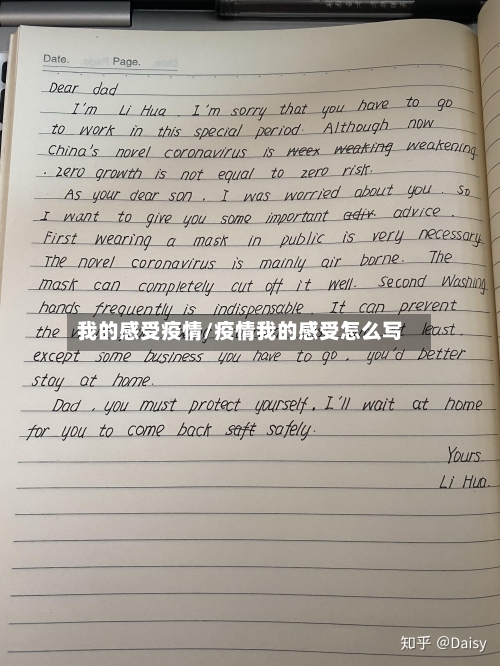 Date. Page.
Dear dad
I'm Li Hua. I'm sorry that you have to go
to work in this special period. Although now
China's novel coronavirus is weex weaking weakening
. zero growth is not equal to zero risk.
As your dear son, I was worried about you. So
I want to give you some important adiv. advice.
First wearing a mask in public is very necessary
The novel coronavirus is mainly air borne. The
mask can completely cut off it well. Second Washing
hands frequently is indispensable. It can prevent
the
我的感受疫情/疫情我的感受怎么写
least.
except some business you have to go. you'd better
stay at home.
Dad, you must protect yourself, I'll wait at home
for you to come back saft safely.
Yours.
Li Hua.
知乎 @Daisy